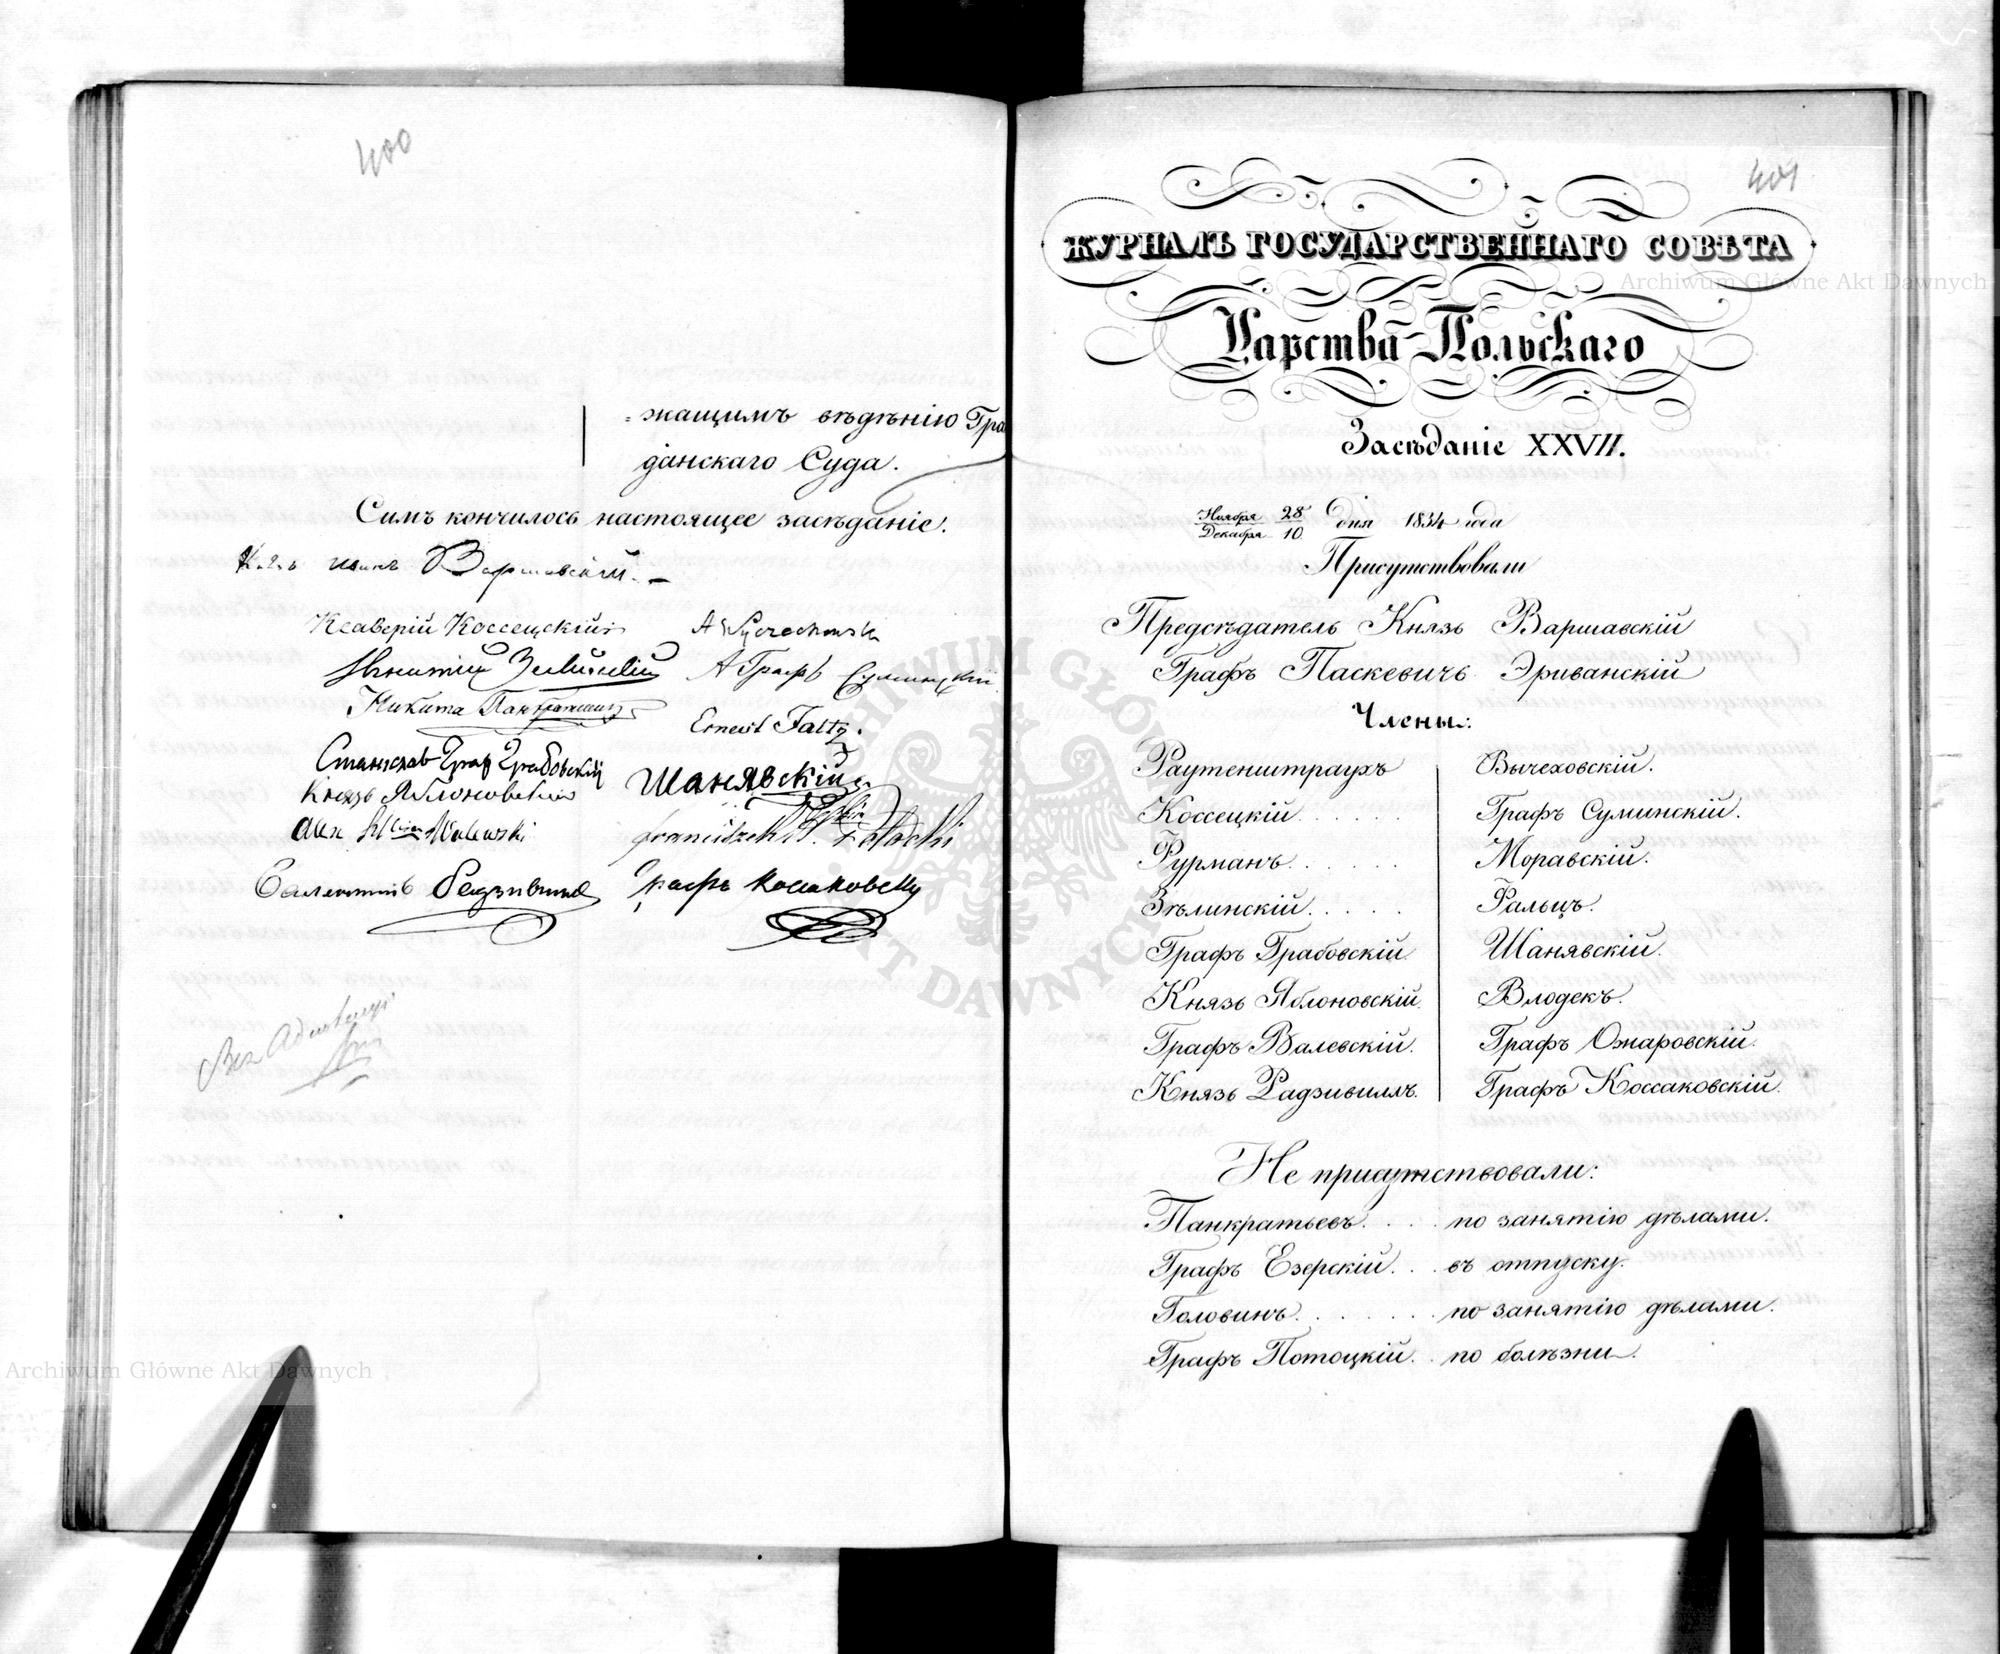 400
жащимъ вѣдѣнію Гра
данскаго Суда.
Симъ кончилось настоящее засѣданіе.
Варшавскій.
Ксаверій Коссецкій
A Wyczechowski
А Графъ Суминскій
Никита Панкратьевъ
Ernest Faltz.
Станиславъ Графъ Грабовскій
Князь Яблоновскій
Шанявскій
Alex Walewski
Franciszek Potocki
Графъ Коссаковскій
401
ЖУРНАЛЪ ГОСУДАРСТВЕННАГО СОВѢТА
Царства Польскаго
Засѣданіе XXVII.
Ноября 28 дня 1834 года
Декабря 10
Присутствовали
Предсѣдатель Князь Варшавскій
Графъ Паскевичъ Эриванскій
Члены:
Раутенштраухъ
Коссецкій.......
Фурманъ.......
Зѣлинскій.....
Графъ Грабовскій
Князь Яблоновскій
Графъ Валевскій.
Князь Радзивиллъ.
Вычеховскій.
Графъ Суминскій.
Моравскій.
Фальцъ.
Шанявскій.
Влодекъ.
Графъ Ожаровскій.
Графъ Коссаковскій.
Не присутствовали:
Панкратьевъ.... по занятію дѣлами.
Графъ Езерскій... въ отпуску.
Головинъ....... по занятію дѣлами.
Графъ Потоцкій.. по болѣзни.
Archiwum Główne Akt Dawnych
Archiwum Główne Akt Dawnych
ARCHIWUM GŁÓWNE AKT DAWNYCH